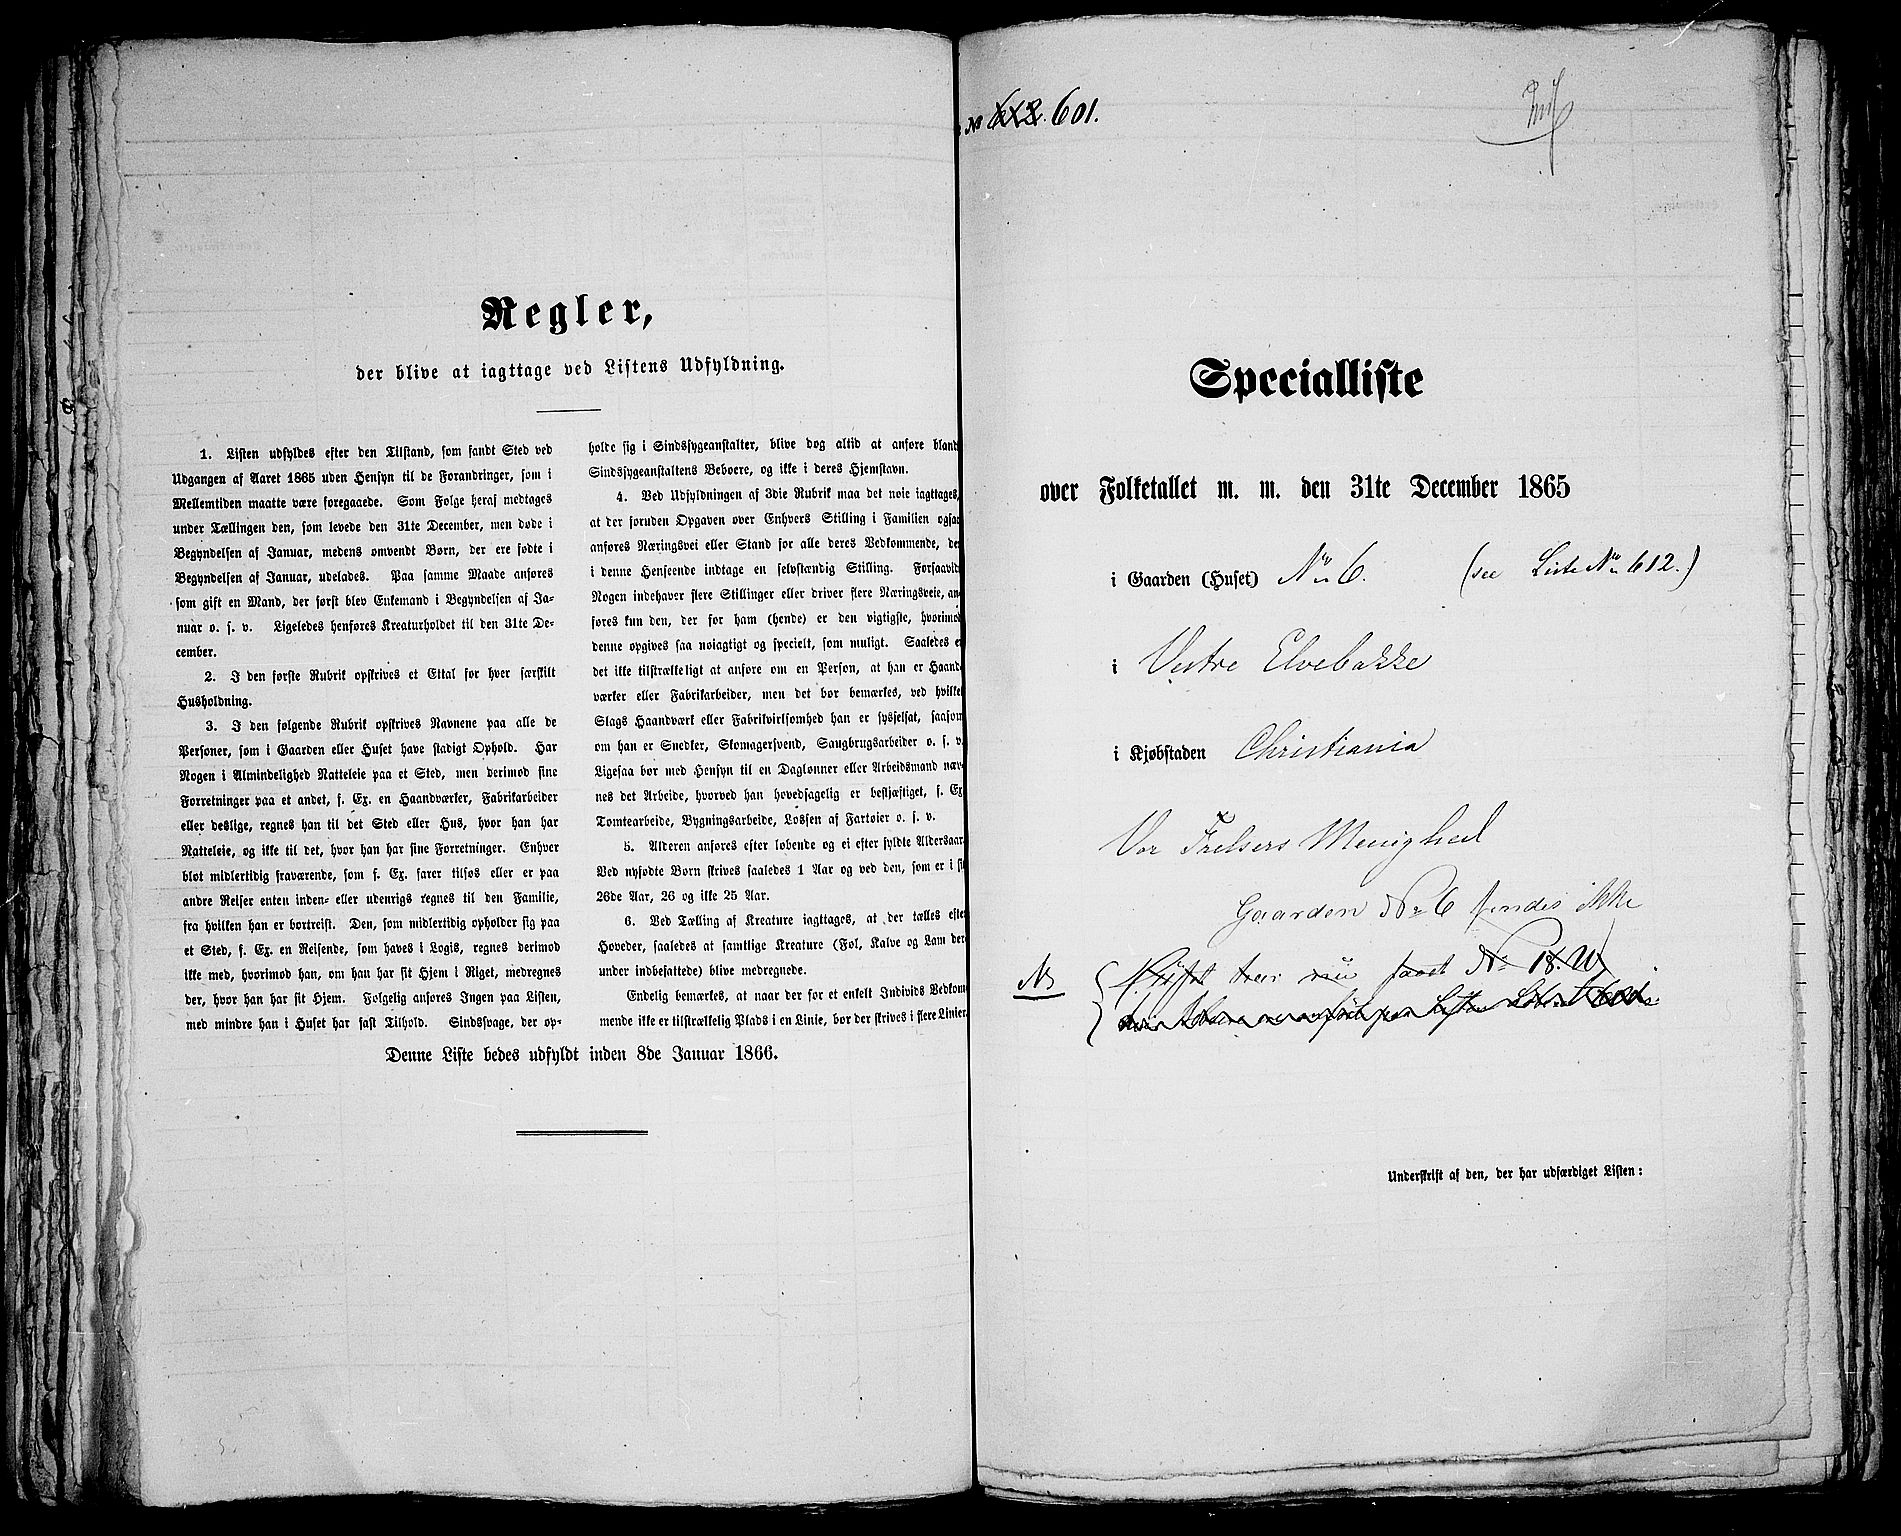 Regler,
der blive at iagttage ved Listens Udfyldning.
1. Listen udfyldes efter den Tilstand, som fandt Sted ved
Udgangen af Aaret 1865 uden Hensyn til de Forandringer, som i
Mellemtiden maatte være foregaaede. Som Følge heraf medtages
under Tællingen den, som levede den 31te December, men døde i
Begyndelsen af Januar, medens omvendt Børn, der ere fødte i
Begyndelsen af Januar, udelades. Paa samme Maade anføres
som gift en Mand, der først blev Enkemand i Begyndelsen af Ja-
nuar o. s. v. Ligeledes henføres Kreaturholdet til den 31te De-
cember.
2. I den første Rubrik opskrives et Ettal for hver særskilt
Husholdning.
3. I den følgende Rubrik opskrives Navnene paa alle de
Personer, som i Gaarden eller Huset have stadigt Ophold. Har
Nogen i Almindelighed Natteleie paa et Sted, men derimod sine
Forretninger paa et andet, f. Ex. en Haandværker, Fabrikarbeider
eller deslige, regnes han til det Sted eller Hus, hvor han har
Natteleie, og ikke til det, hvor han har sine Forretninger. Enhver
blot midlertidig fraværende, som f. Ex. farer tilsøs eller er paa
andre Reiser enten inden- eller udenrigs regnes til den Familie,
fra hvilken han er bortreist. Den, som midlertidig opholder sig paa
et Sted, f. Ex. en Reisende, som haves i Logis, regnes derimod
ikke med, hvorimod han, om han har sit Hjem i Riget, medregnes
der, hvor han har sit Hjem. Følgelig anføres Ingen paa Listen,
med mindre han i Huset har fast Tilhold. Sindssvage, der op-
holde sig i Sindssygeanstalter, blive dog altid at anføre bland
Sindssygeanstaltens Beboere, og ikke i deres Hjemstavn.
4. Ved Udfyldningen af 3die Rubrik maa det nøie iagttages,
at der foruden Opgaven over Enhvers Stilling i Familien ogsaa
anføres Næringsvei eller Stand for alle deres Vedkommende, de
i denne Henseende indtage en selvstændig Stilling. Forsaavidt
Nogen indehaver flere Stillinger eller driver flere Næringsveie, an-
føres kun den, der for ham (hende) er den vigtigste, hvorimod
denne opgives saa nøiagtigt og specielt, som muligt. Saaledes e
det ikke tilstrækkeligt at anføre om en Person, at han er Haand-
værker eller Fabrikarbeider, men det bør bemærkes, ved hvilket
Slags Haandværk eller Fabrikvirksomhed han er sysselsat, saasom
om han er Snedker, Skomagersvend, Saugbrugsarbeider o. s. v.
Ligesaa bør med Hensyn til en Dagløner eller Arbeidsmand næv-
nes det Arbeide, hvorved han hovedsagelig er beskjæftiget, f. Ex
Tomtearbeide, Bygningsarbeide, Lossen af Fartøier o. s. v.
5. Alderen anføres efter løbende og ei efter fyldte Aldersaar.
Ved nyfødte Børn skrives saaledes 1 Aar og ved den, som er i sit
26de Aar, 26 og ikke 25 Aar.
6. Ved Tælling af Kreature iagttages, at der tælles efter
Hoveder, saaledes at samtlige Kreature (Føl, Kalve og Lam der-
under indbefattede) blive medregnede.
Endelig bemærkes, at naar der for et enkelt Individs Vedkom-
mende ikke er tilstrækkelig Plads i en Linie, bør der skrives i flere Linier.
Denne Liste bedes udfyldt inden 8de Januar 1866.
No 612. 601.
Specialliste
over Folketallet m. m. den 31te December 1865
i Gaarden (Huset) No 6. (see Liste No 612.)
i Vestre Elvebakke
i Kjøbstaden Christiania
Vor Frelsers Menighed
Gaarden No 6 findes ikke
NB har nu faaet No 18.
Underskrift af den, der har udfærdiget Listen: